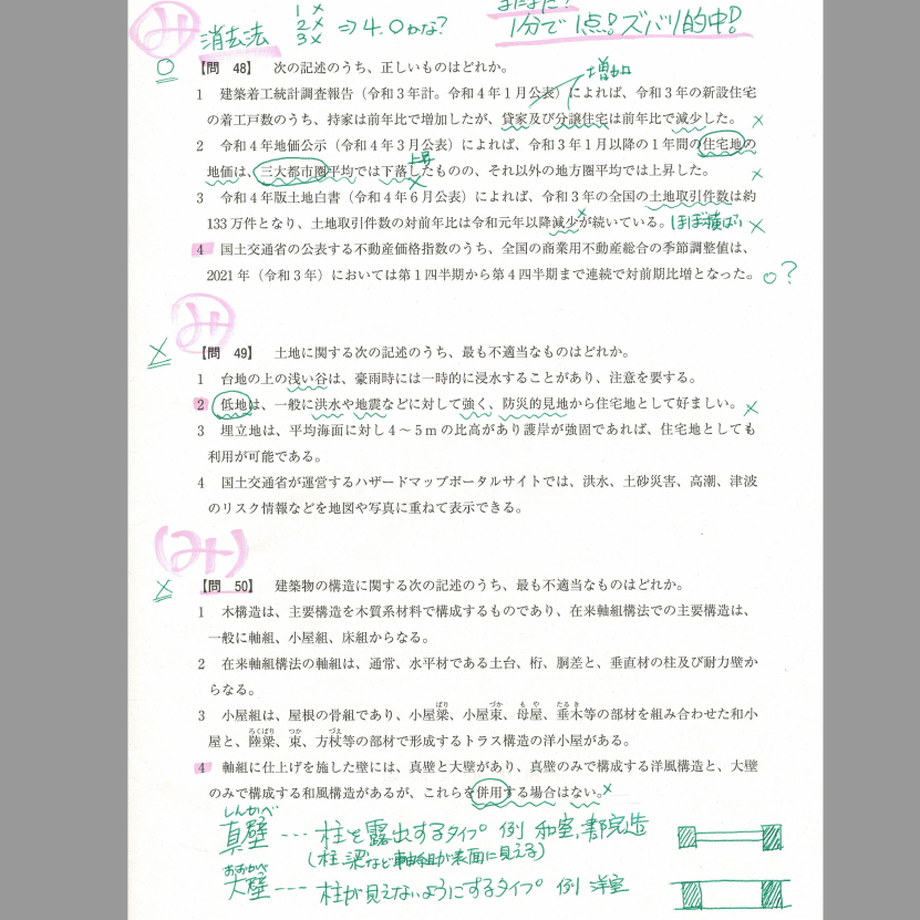 まにまだ!
み 消去法 1× 2× 3× ⇒4.○かな?
1分で1点!ズバリ的中!
○ 【問 48】 次の記述のうち、正しいものはどれか。
増加
1 建築着工統計調査報告(令和3年計。令和4年1月公表)によれば、令和3年の新設住宅
の着工戸数のうち、持家は前年比で増加したが、貸家及び分譲住宅は前年比で減少した。 ×
2 令和4年地価公示(令和4年3月公表)によれば、令和3年1月以降の1年間の住宅地の
上昇
地価は、三大都市圏平均では下落したものの、それ以外の地方圏平均では上昇した。 ×
3 令和4年版土地白書(令和4年6月公表)によれば、令和3年の全国の土地取引件数は約
133万件となり、土地取引件数の対前年比は令和元年以降減少が続いている。ほぼ横ばい ×
4 国土交通省の公表する不動産価格指数のうち、全国の商業用不動産総合の季節調整値は、
2021年(令和3年)においては第1四半期から第4四半期まで連続で対前期比増となった。 ○?
み
× 【問 49】 土地に関する次の記述のうち、最も不適当なものはどれか。
1 台地の上の浅い谷は、豪雨時には一時的に浸水することがあり、注意を要する。
2 低地は、一般に洪水や地震などに対して強く、防災的見地から住宅地として好ましい。 ×
3 埋立地は、平均海面に対し4~5mの比高があり護岸が強固であれば、住宅地としても
利用が可能である。
4 国土交通省が運営するハザードマップポータルサイトでは、洪水、土砂災害、高潮、津波
のリスク情報などを地図や写真に重ねて表示できる。
(み)
× 【問 50】 建築物の構造に関する次の記述のうち、最も不適当なものはどれか。
1 木構造は、主要構造を木質系材料で構成するものであり、在来軸組構法での主要構造は、
一般に軸組、小屋組、床組からなる。
2 在来軸組構法の軸組は、通常、水平材である土台、桁、胴差と、垂直材の柱及び耐力壁か
らなる。
ばり づか もや たるき
3 小屋組は、屋根の骨組であり、小屋梁、小屋束、母屋、垂木等の部材を組み合わせた和小
ろくばり つか づえ
屋と、陸梁、束、方杖等の部材で形成するトラス構造の洋小屋がある。
4 軸組に仕上げを施した壁には、真壁と大壁があり、真壁のみで構成する洋風構造と、大壁
のみで構成する和風構造があるが、これらを併用する場合はない。×
しんかべ
真壁 --- 柱を露出するタイプ 例 和室,書院造
(柱、梁など軸組が表面に見える)
おおかべ
大壁 --- 柱が見えないようにするタイプ 例 洋室